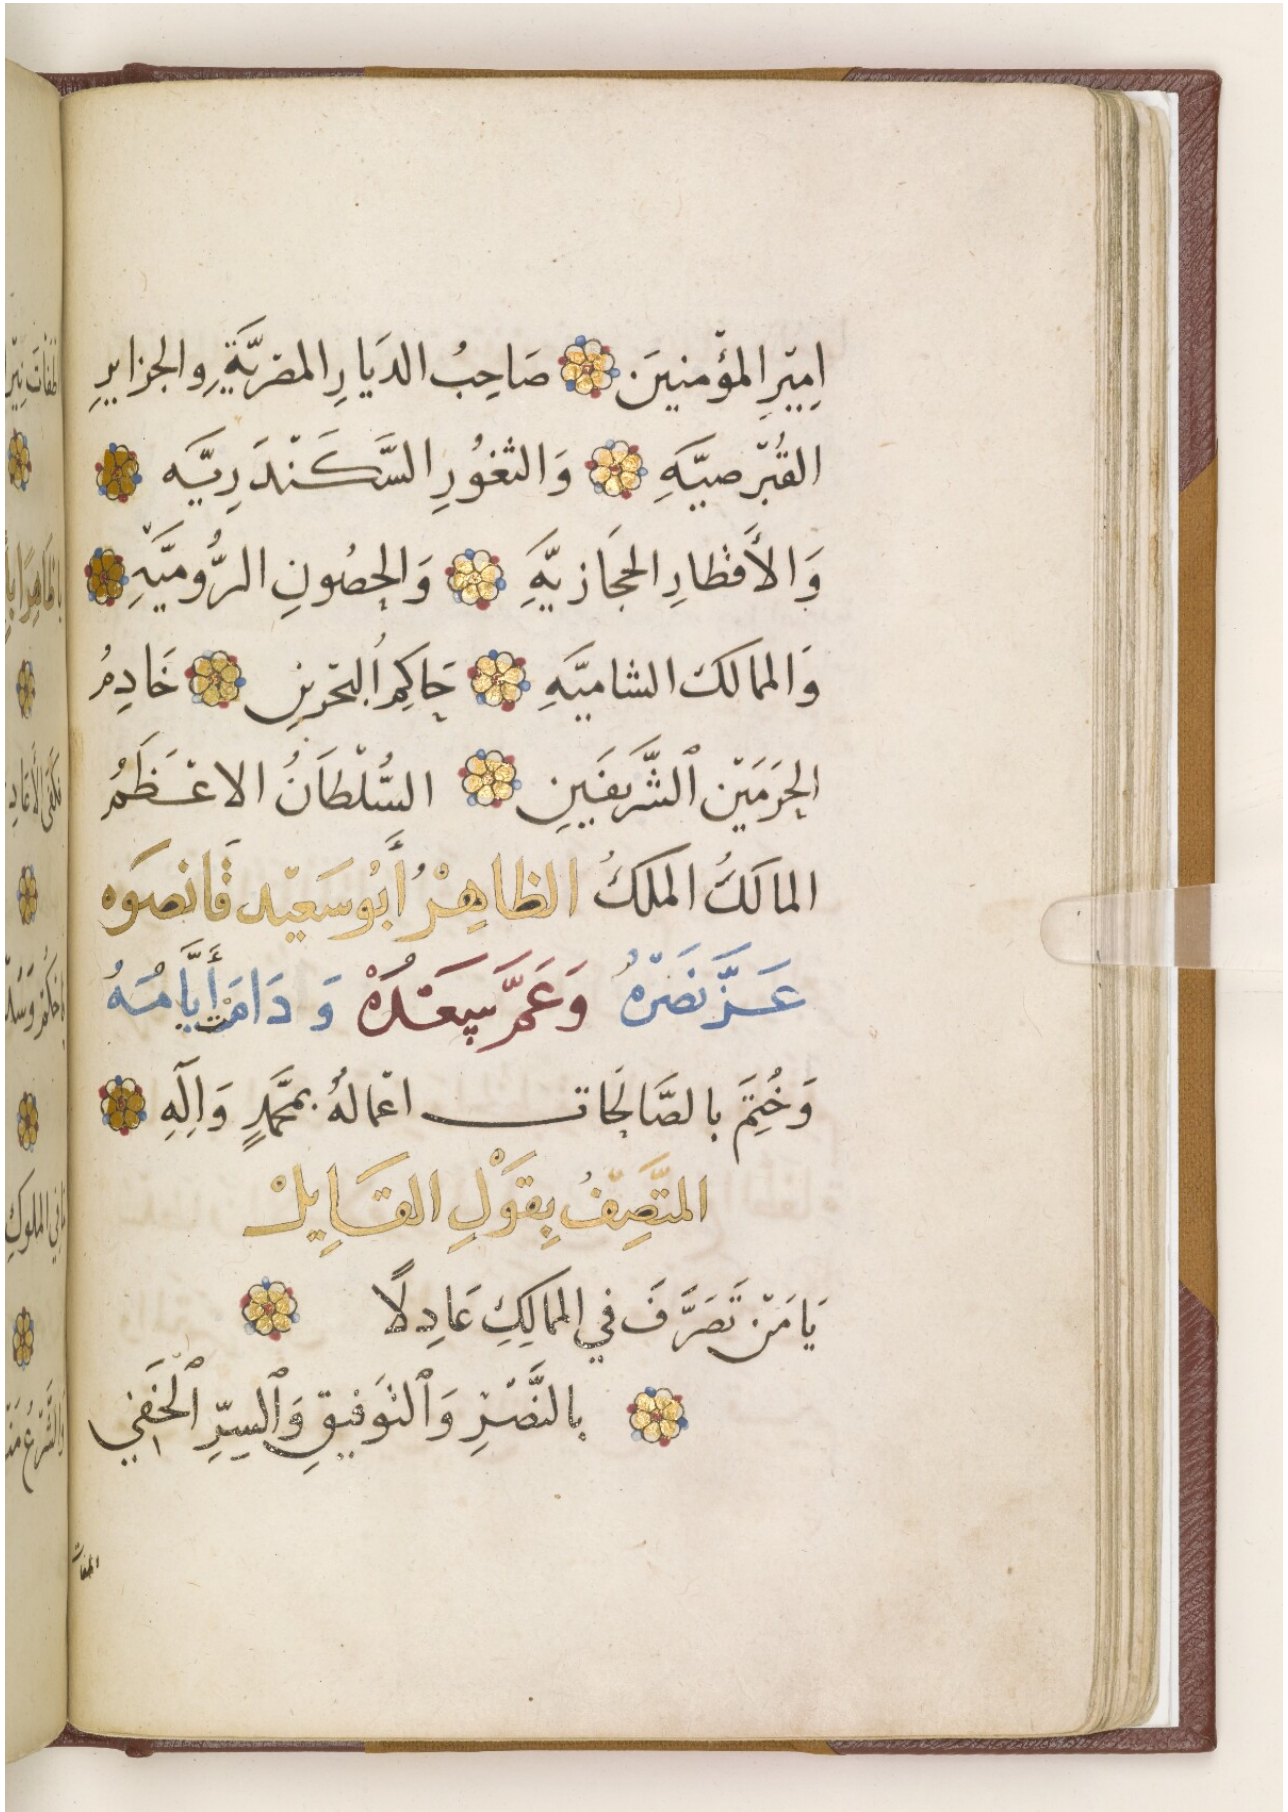 اِمِيْرِ المؤْمنينَ صَاحِبُ الديَارِ المصْريَّةِ والجزايرِ
القُبْرصيَّهِ وَالثغوُرِ السَّكَنْدَرِيَّه
وَالأَقْطارِ الحجَازيَّهِ وَالحصُونِ الرُّوميَّهِ
وَالممالك الشاميَّهِ حَاكِم اُلبَحْرينِ خَادِمُ
الحرَمَيْن ٱلشَّرَيفَينِ السُّلْطَانُ الاعْظَمُ
المالكُ الملكُ الظاهِرُ أَبُو سَعيْد قَانصوَه
عَزَّ نَصْرهُ وَعَمَّ سَعْدُهْ وَ دَامَتْ أَيَّامُهُ
وَخُتِمَ بالصَّالحَات اعْمالهُ بمحَّمدٍ وَاۤلِهِ
المتَّصِفُ بِقَوْلِ القَايِلْ
يَا مَنْ تَصَرَّفَ في الممالِكِ عَادِلًا
بالنَّصْرِ وَٱلتوَفيقِ وَٱلسِرِّ ٱلخَفِي